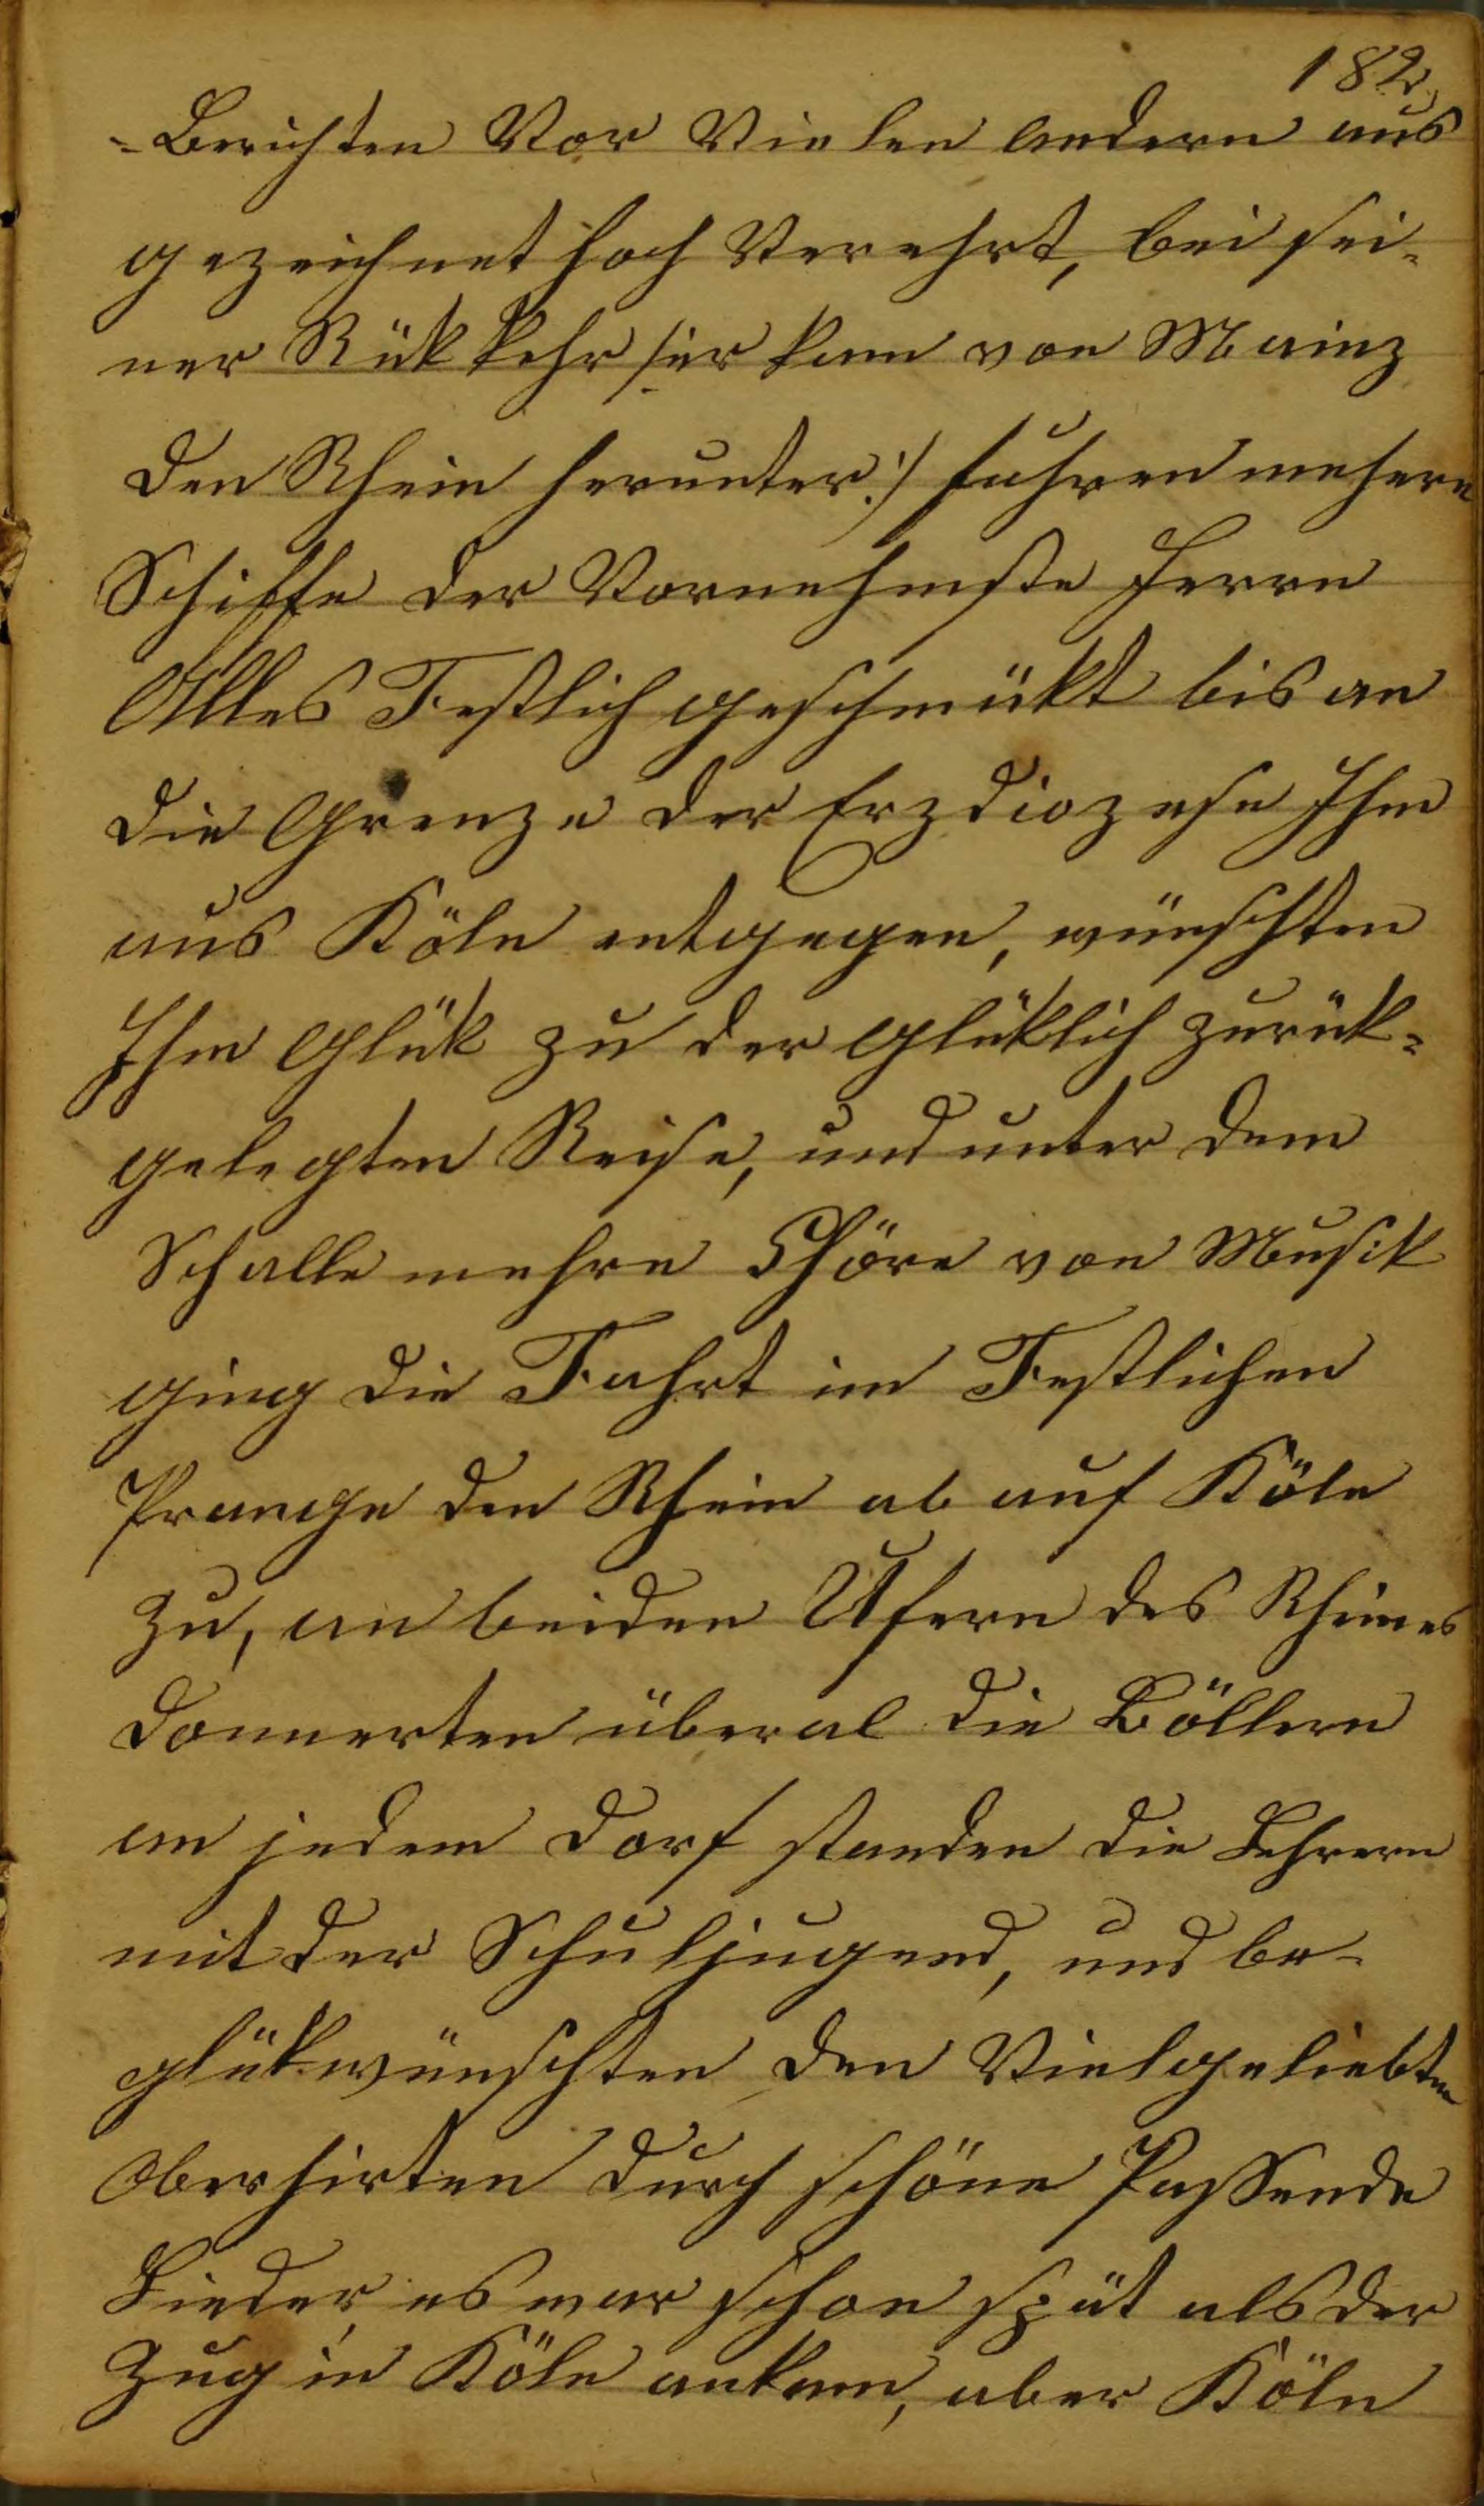 182,
-Berichten Vor Vielen Andern aus
gezeichnet hoch Verehrt, bei sei-
ner Rükkehr /:er kam von Mainz
den Rhein herunter:/ fuhren mehere
Schiffe der Vornehmste Herrn
Alles Festlich geschmükt bis an
die Grenze der Erzdiozese Ihm
aus Köln entgegen, wünschten
Ihm Glük zu der glüklich zurük-
gelegten Reise, und unter dem
Schalle mehre Chöre von Musik
ging die Fahrt im Festlichen
Prange den Rhein ab auf Köln
zu, an beiden Ufern des Rheines
donnerten überal die Böllern
an jedem Dorf standen die Lehrern
mit der Schuljugend, und be-
glükwünschten den Vielgeliebten
Oberhirten durch schöne Passende
Lieder, es war schon spät als der
Zug in Köln ankam, aber Köln